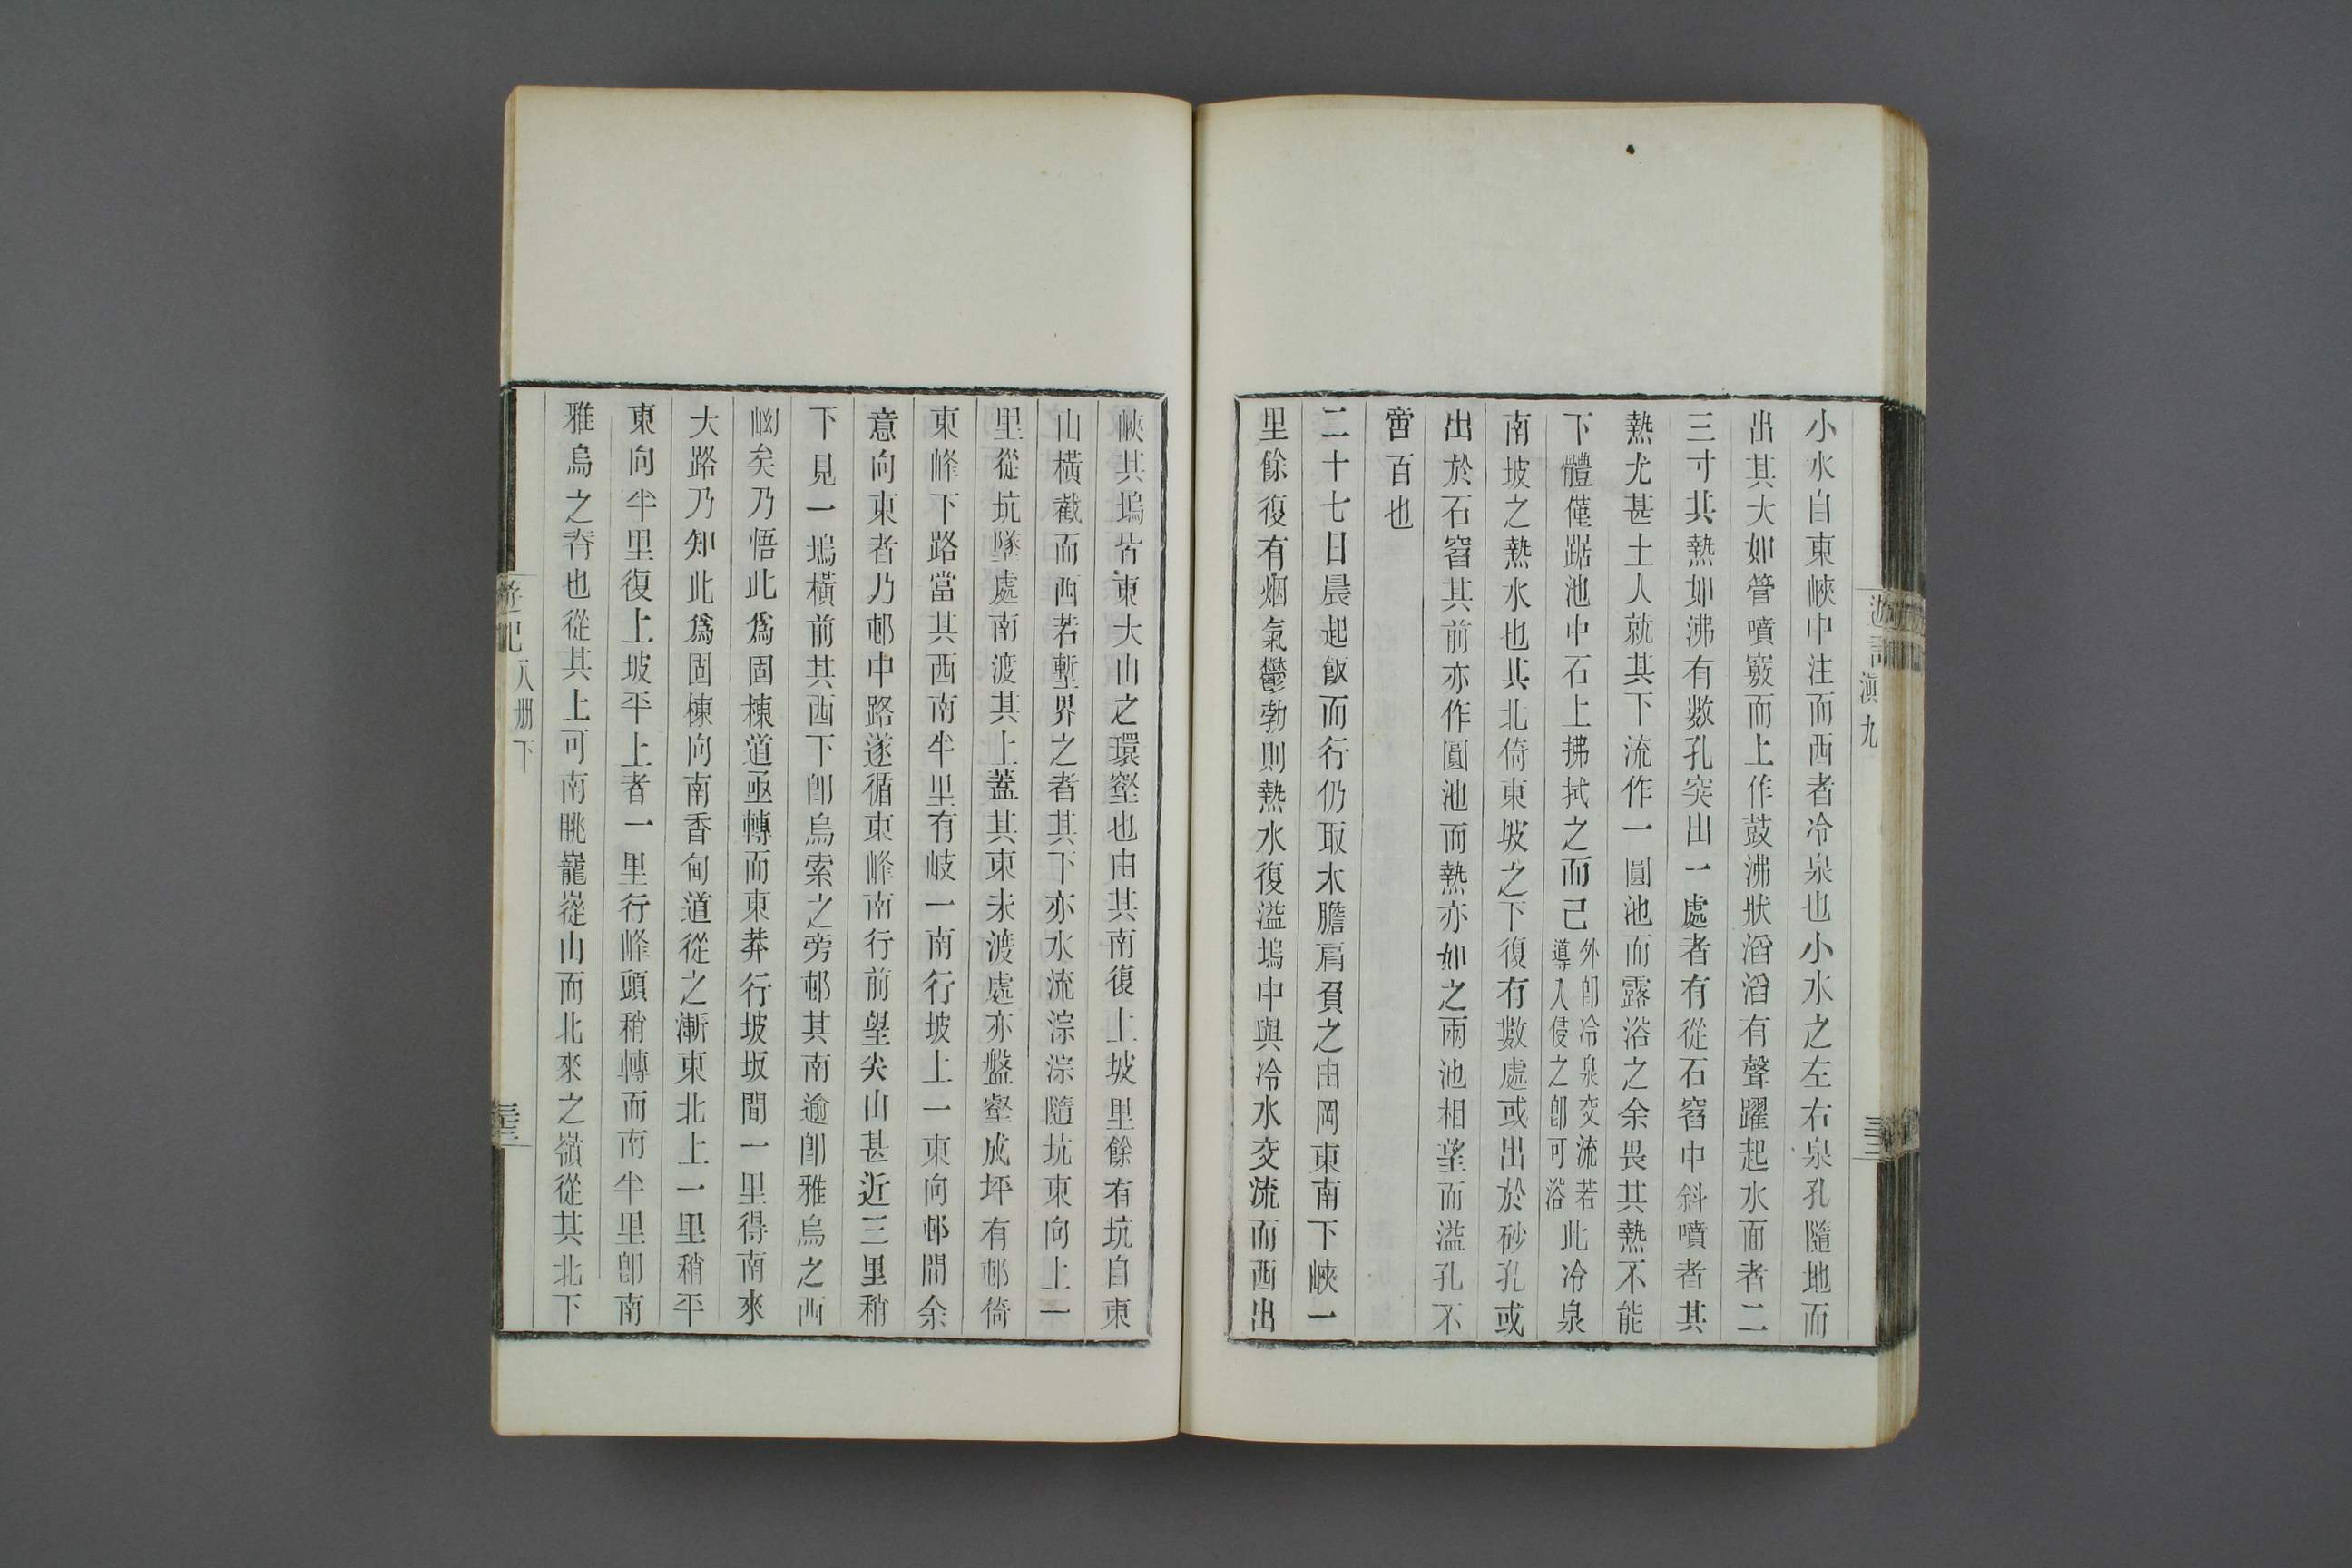 遊記
滇九
小水自東峽中注而西者冷泉也小水之左右泉孔隨地而
出其大如管噴竅而上作鼓沸狀滔滔有聲躍起水面者二
三寸其熱如沸有數孔突出一處者有從石窞中斜噴者其
熱尤甚土人就其下流作一圓池而露浴之余畏其熱不能
下體僅踞池中石上拂拭之而已外卽冷泉交流若導入侵之卽可浴此冷泉
南坡之熱水也其北倚東坡之下復有數處或出於砂孔或
出於石窞其前亦作圓池而熱亦如之兩池相望而溢孔不
啻百也
二十七日晨起飯而行仍取木膽肩負之由岡東南下峽一
里餘復有烟氣鬱勃則熱水復溢塢中與冷水交流而西出
峽其塢皆東大山之環壑也由其南復上坡里餘有坑自東
山橫截而西若塹界之者其下亦水流淙淙隨坑東向上一
里從坑墜處南渡其上蓋其東未渡處亦盤壑成坪有邨倚
東峰下路當其西南半里有岐一南行坡上一東向邨間余
意向東者乃邨中路遂循東峰南行前望尖山甚近三里稍
下見一塢橫前其西下卽烏索之旁邨其南逾卽雅烏之西
峽矣乃悟此爲固棟道亟轉而東莽行坡坂間一里得南來
大路乃知此爲固棟向南香甸道從之漸東北上一里稍平
東向半里復上坡平上者一里行峰頭稍轉而南半里卽南
雅烏之脊也從其上可南眺巃嵷山而北來之嶺從其北下
遊記
八册下